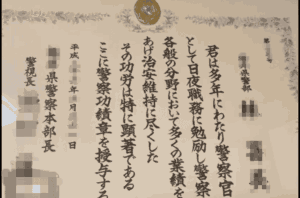 県警部
君は多年にわたり警察官
として日夜職務に勉励し警察
各般の分野において多くの業績を
あげ治安維持に尽くした
その功労は特に顕著である
ここに警察功績章を授与する
平成 年 月 日
県警察本部長
警視長